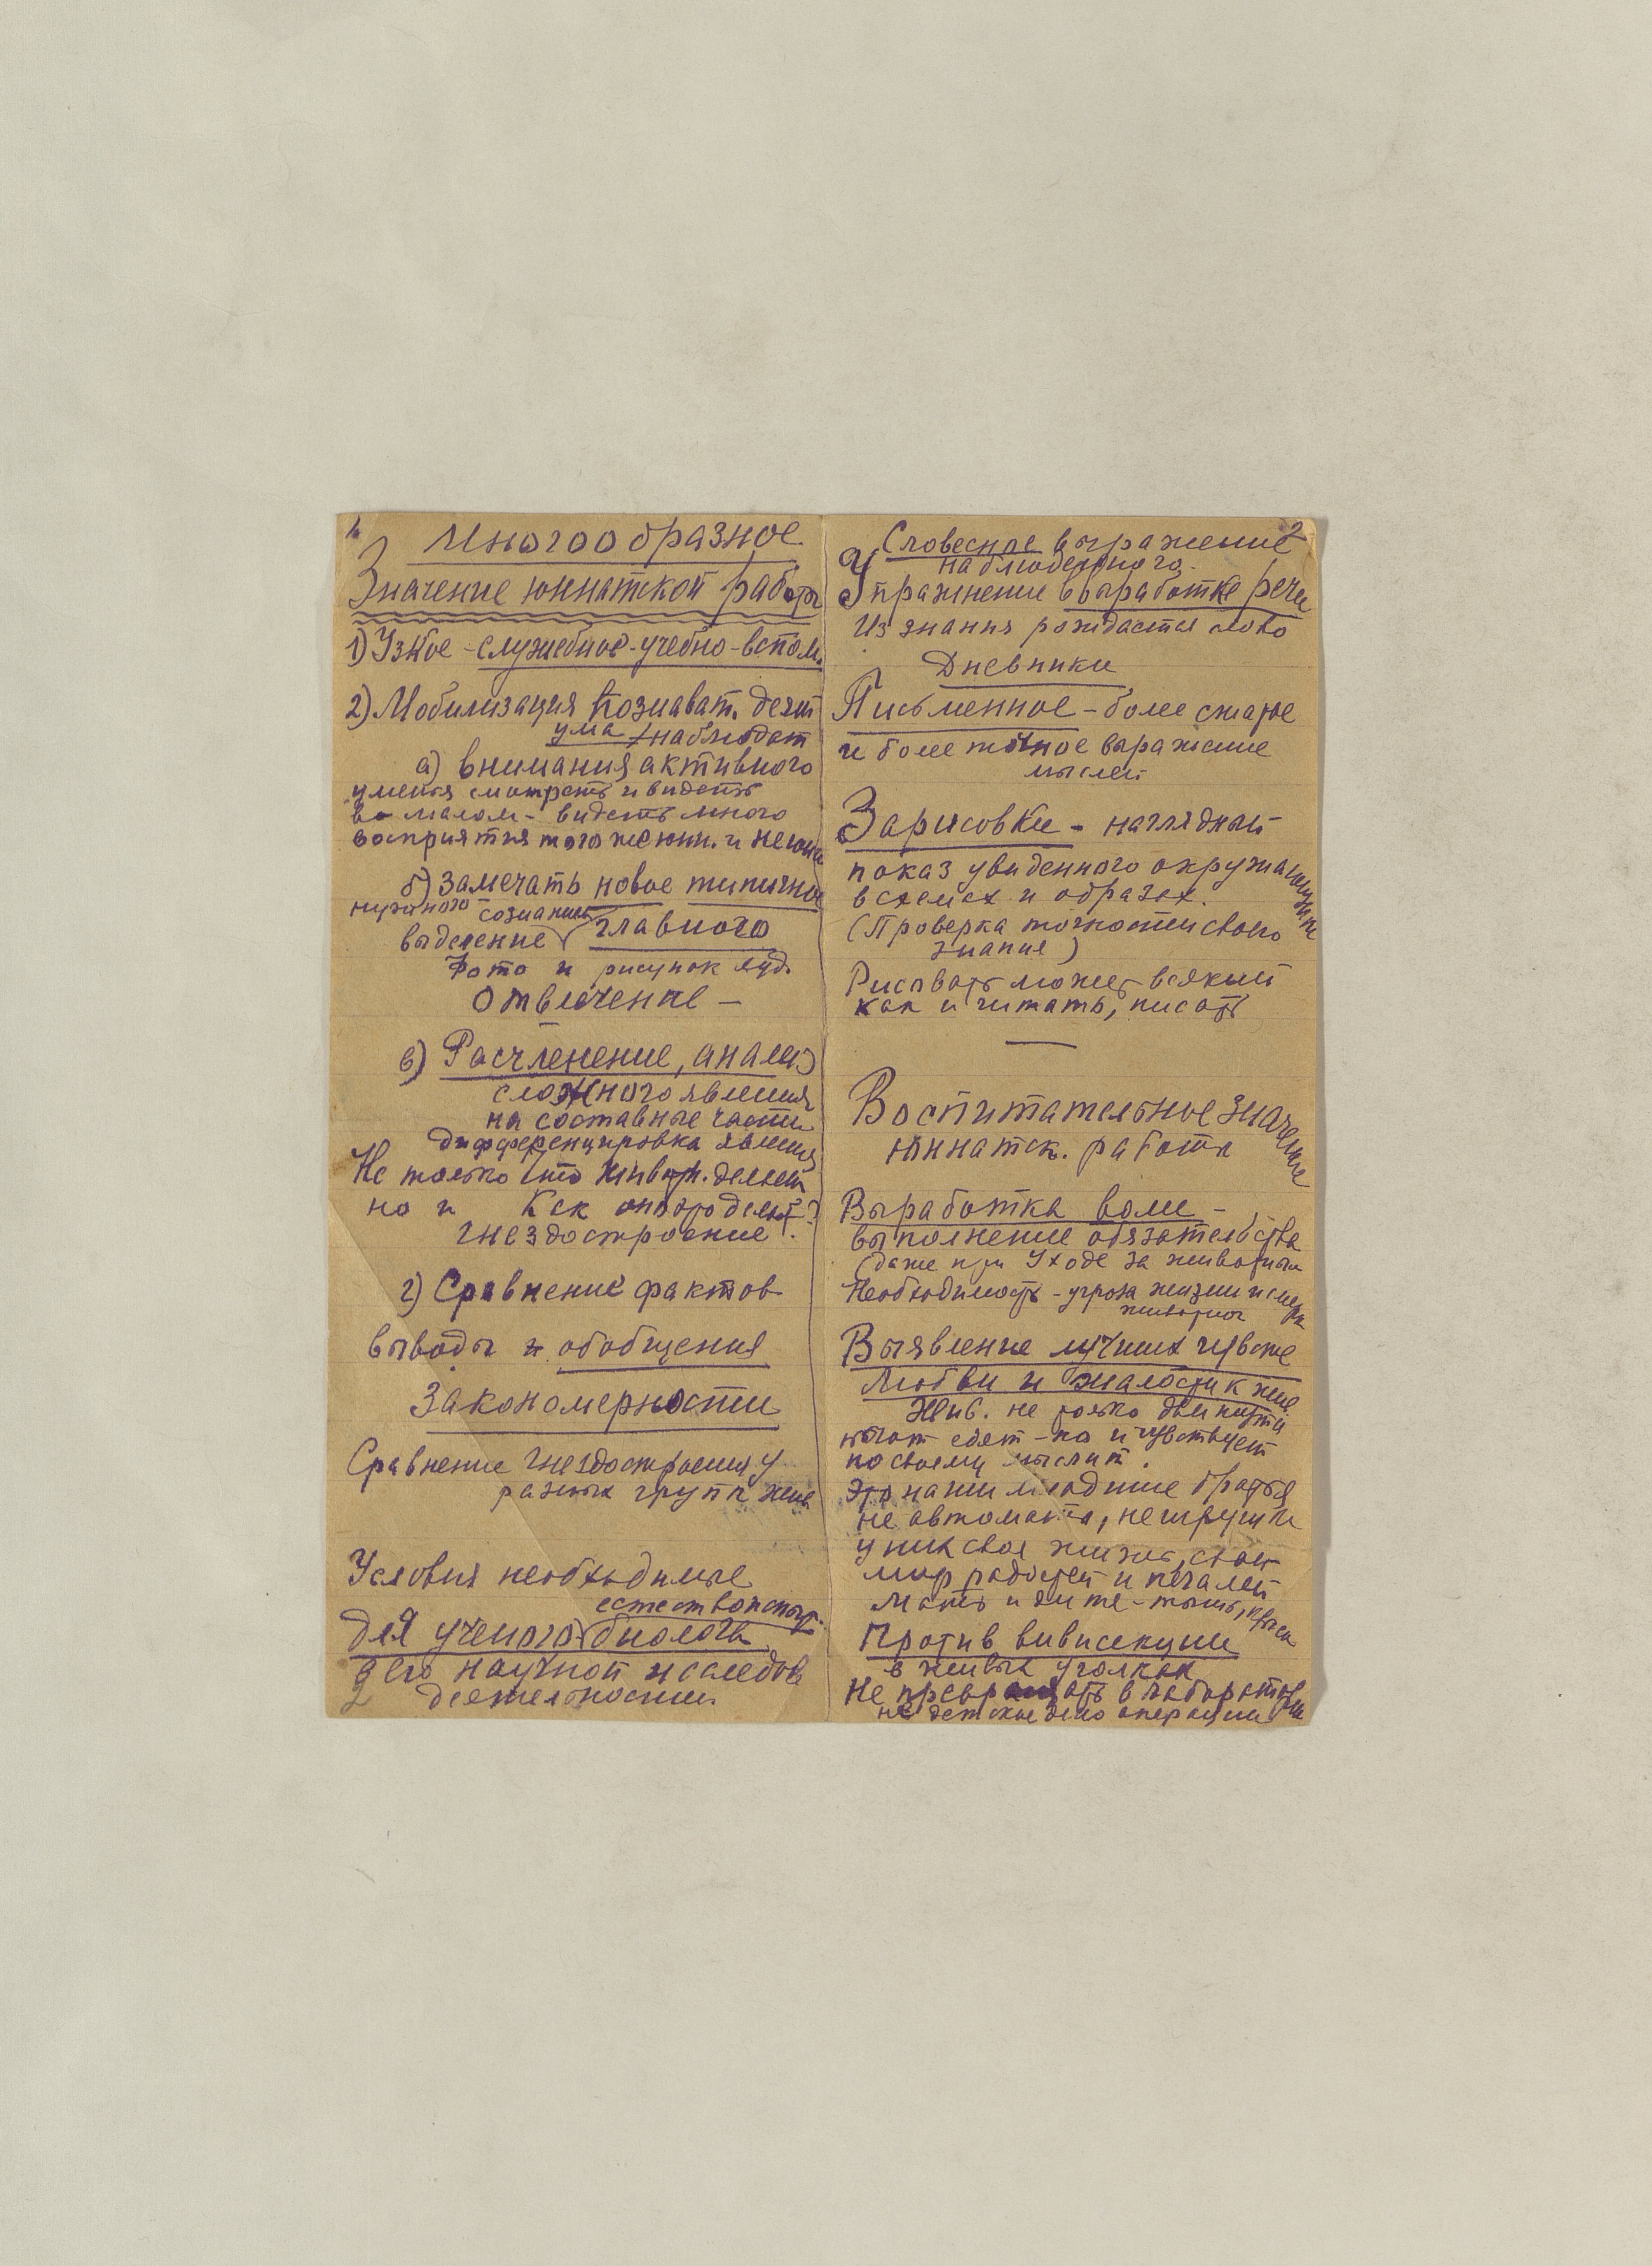 1.
Многообразное
Значение юннатской работы
1) Узкое - служебное - учебно - вспом.
2) Мобилизация познават. деят
ума + наблюдат
а) внимания активного
уменья смотреть и видеть
в малом - видеть много
восприятия того же юнн. и не юнн
б) замечать новое типичное
нужного сознанию
выделение главного
Фото и рисунок худ.
Отвлечение —
в) Расчленение, анализ
сложного явления
на составные части
дифференцировка явления
Не только что животн. делает
но и Как он это делает?
гнездостроение.
г) Сравнение фактов
выводы и обобщения
Закономерности
Сравнение гнездостроения у
разных групп жив
Условия необходимые
естествоиспыт.
для ученого биолога
в его научной исследов
деятельности.
2
Словесное выражение
наблюденного.
Упражнение в выработке речи
Из знания рождается слово
Дневники
Письменное - более сжатое
и более точное выражение
мыслей
Зарисовки - наглядный
показ увиденного окружающими
в схемах и образах.
(Проверка точности своего
знания)
Рисовать может всякий
как и читать, писать
Воспитательное значение
юннатск. работы
Выработка воли -
выполнение обязательства
(даже при уходе за животным
Необходимость - угроза жизни и смерти
животных
Выявление лучших чувств
Любви и жалости к жив
Жив. не только
едят - но и чувствует
по своему мыслит.
Это наши младшие братья
не автоматы, не игрушки
у них своя жизнь, свой
мир радостей и печалей
Мать и дите - мышь, крыса
Против вивисекции
в живых уголках
Не превращать в лаборатории
не детское дело операции